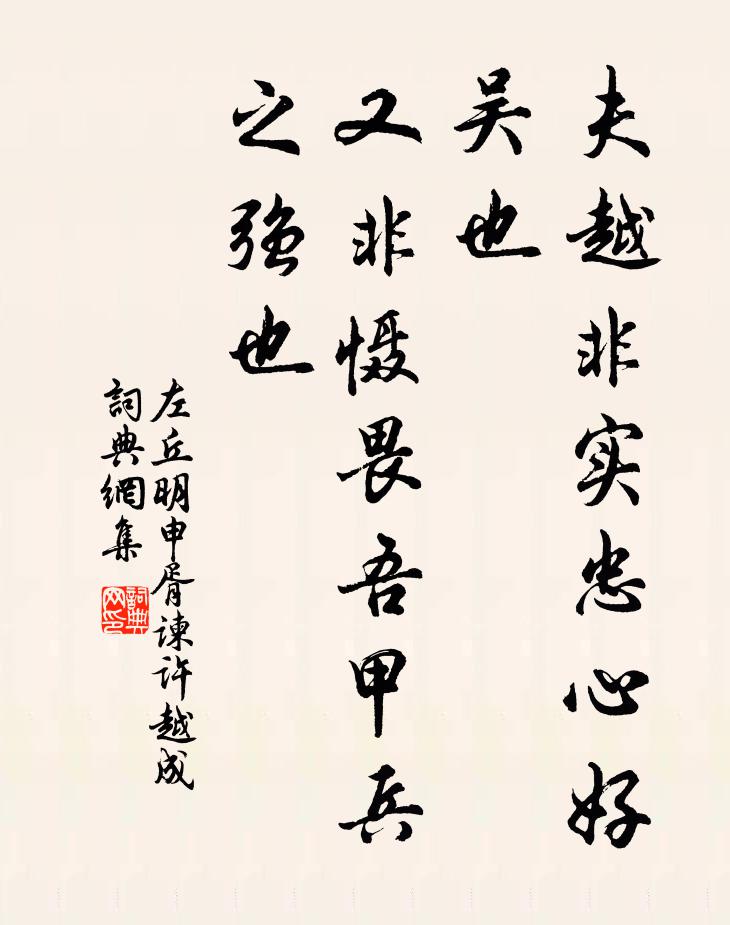 夫越非实忠心好
吴也
又非慑畏吾甲兵
之强也
左丘明申胥谏许越成
詞典網集
詞典
网印